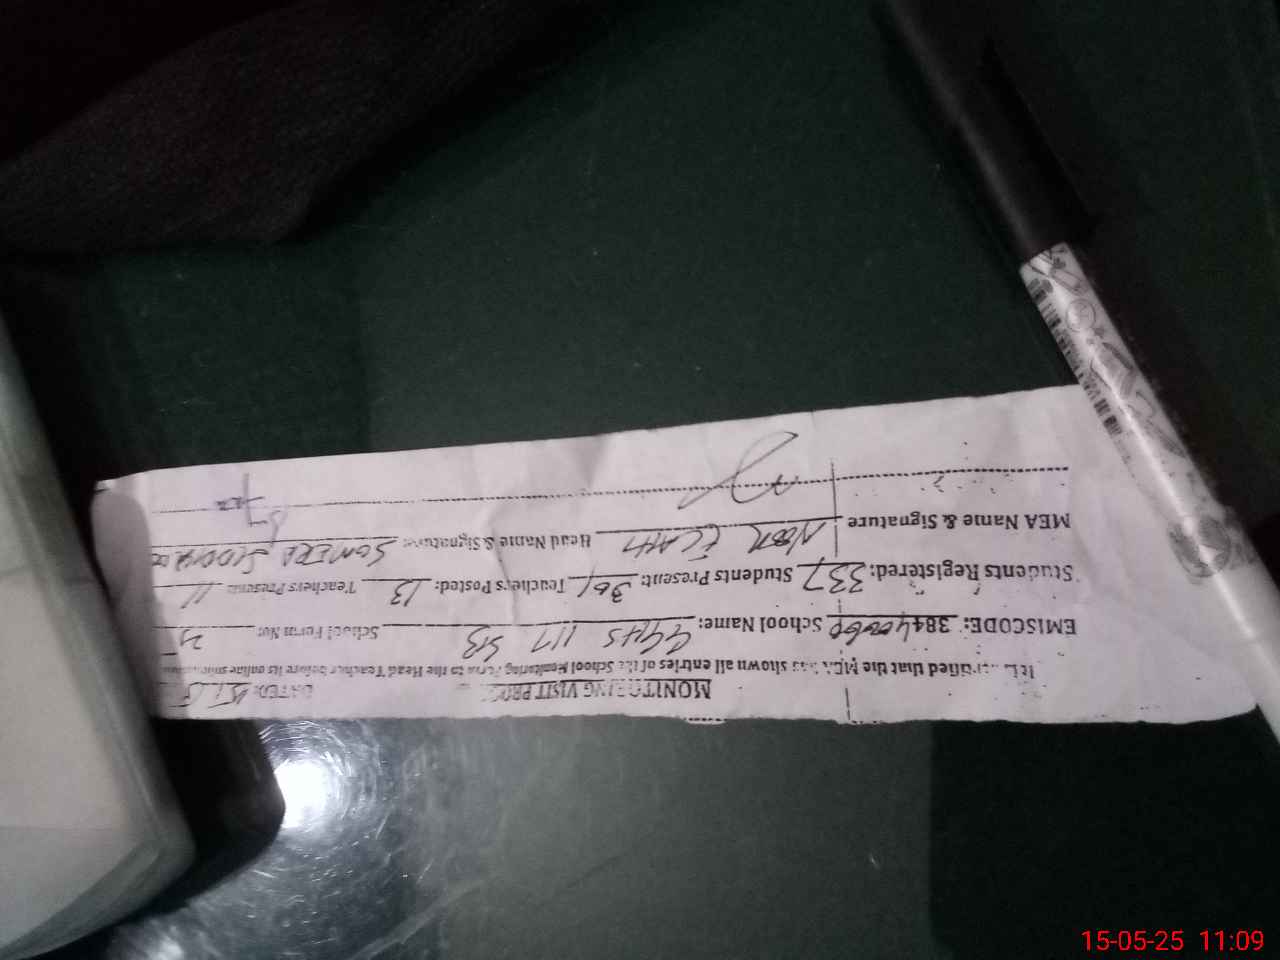 MONITORING VISIT DATED: 15
that the MEA has shown all entries of the School Monitoring Form to the Head Teacher before its online
EMISCODE: 384400 School Name: GGHS 117 SB School Form No: 25
Students Registered: 337 Students Present: 301 Teachers Posted: 13 Teachers Present: 11
MEA Name & Signature NOOR ELAHI Head Name & Signature: SUMERA
15-05-25 11:09